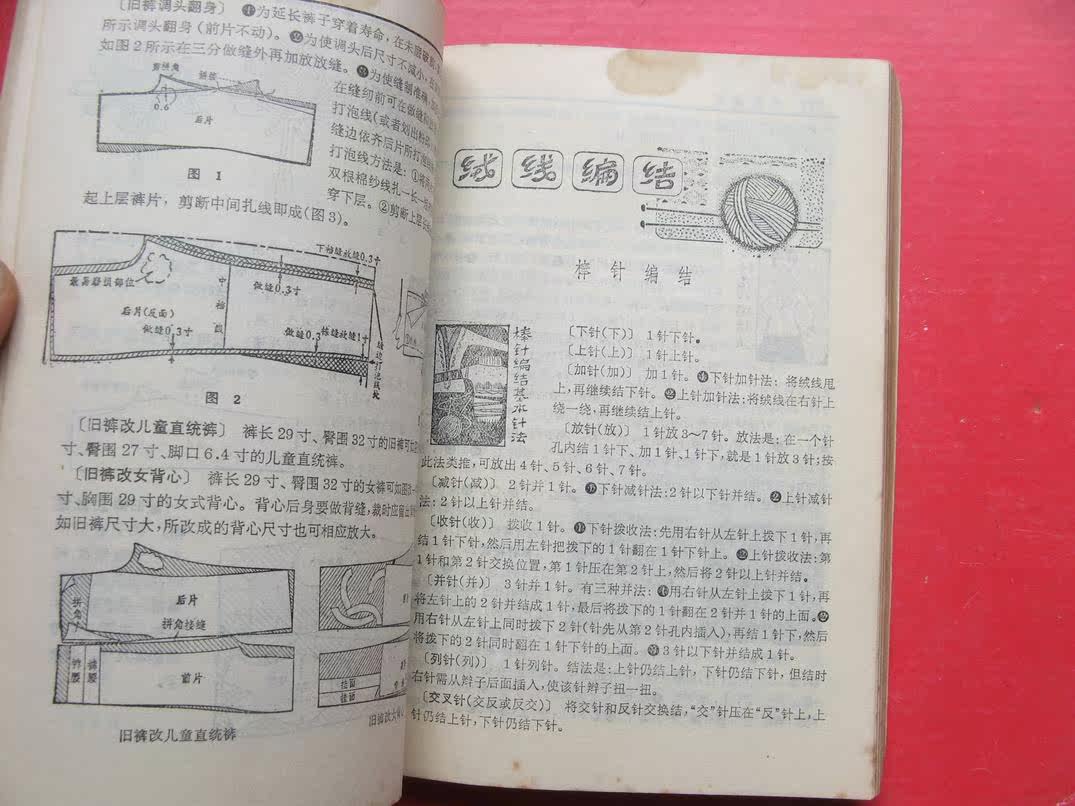 〔旧裤调头翻身〕 ❶为延长裤子穿着寿命，在未磨破
所示调头翻身(前片不动)。❷为使调头后尺寸不减小，
如图2所示在三分做缝外再加放放缝。❸为使缝制准确，
在缝纫前可在做缝
打泡线(或者划出粉印
缝边依齐后片所打泡
打泡线方法是：①将两
双根棉纱线扎一长一短
穿下层。②剪断上层
起上层裤片，剪断中间扎线即成(图3)。
剪拼角
0.6
后片
图 1
下裆缝放缝0.3寸
最易磨损部位
做缝0.3寸
中裆线
后片(反面)
做缝0.3寸
做缝0.3
栋缝放缝1寸
缝边打泡线处
图 2
〔旧裤改儿童直统裤〕 裤长29寸、臀围32寸的旧裤可
寸、臀围27寸、脚口6.4寸的儿童直统裤。
〔旧裤改女背心〕 裤长29寸、臀围32寸的女裤可如图
寸、胸围29寸的女式背心。背心后身要做背缝，裁时应留出
如旧裤尺寸大，所改成的背心尺寸也可相应放大。
拼角
后片
拼角接缝
裤腰
裤腰
前片
挂面
挂面
旧裤改儿童直统裤
旧裤改女背心
绒线编结
棒针编结
棒针编结基本针法
〔下针(下)〕 1针下针。
〔上针(上)〕 1针上针。
〔加针(加)〕 加1针。❶下针加针法：将绒线甩
上，再继续结下针。❷上针加针法：将绒线在右针上
绕一绕，再继续结上针。
〔放针(放)〕 1针放3～7针。放法是：在一个针
孔内结1针下、加1针、1针下，就是1针放3针；按
此法类推，可放出4针、5针、6针、7针。
〔减针(减)〕 2针并1针。❶下针减针法：2针以下针并结。❷上针减针
法：2针以上针并结。
〔收针(收)〕 拨收1针。❶下针拨收法：先用右针从左针上拨下1针，再
结1针下针，然后用左针把拨下的1针翻在1针下针上。❷上针拨收法：第
1针和第2针交换位置，第1针压在第2针上，然后将2针以上针并结。
〔并针(并)〕 3针并1针。有三种并法：❶用右针从左针上拨下1针，再
将左针上的2针并结成1针，最后将拨下的1针翻在2针并1针的上面。❷
用右针从左针上同时拨下2针(针先从第2针孔内插入)，再结1针下，然后
将拨下的2针同时翻在1针下针的上面。❸3针以下针并结成1针。
〔列针(列)〕 1针列针。结法是：上针仍结上针，下针仍结下针，但结时
右针需从辫子后面插入，使该针辫子扭一扭。
〔交叉针(交反或反交)〕 将交针和反针交换结，“交”针压在“反”针上，上
针仍结上针，下针仍结下针。